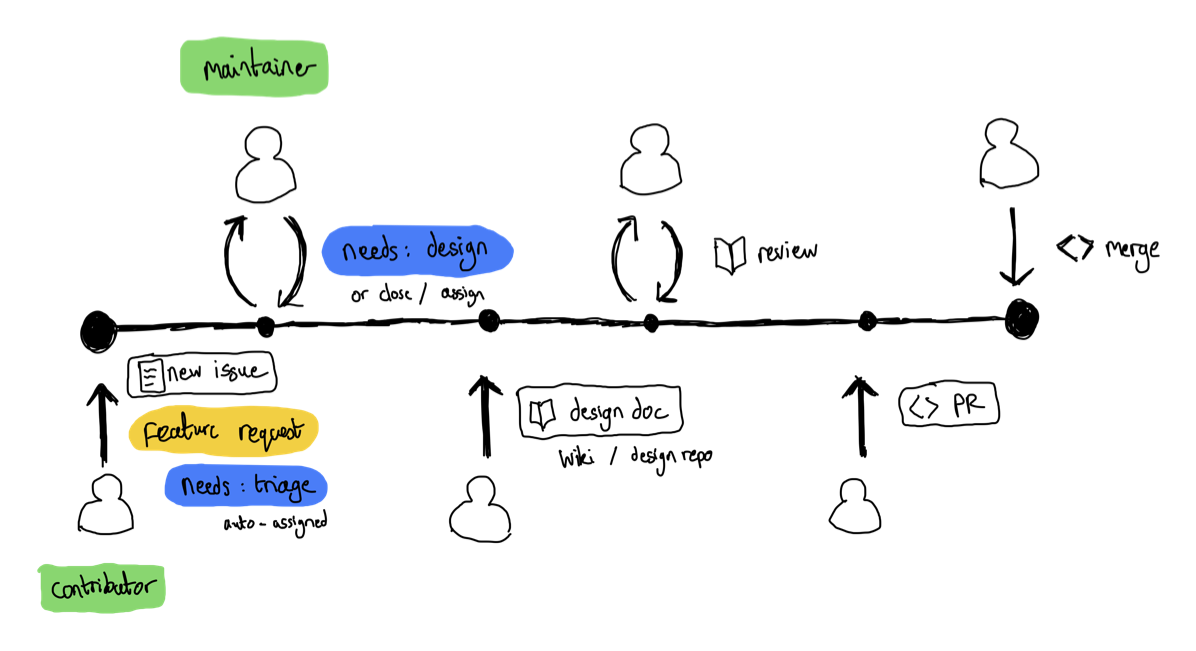 Maintainer
needs: design
or close / assign
review
<> merge
new issue
Feature request
needs: triage
auto-assigned
design doc
Wiki / design repo
<> PR
contributor